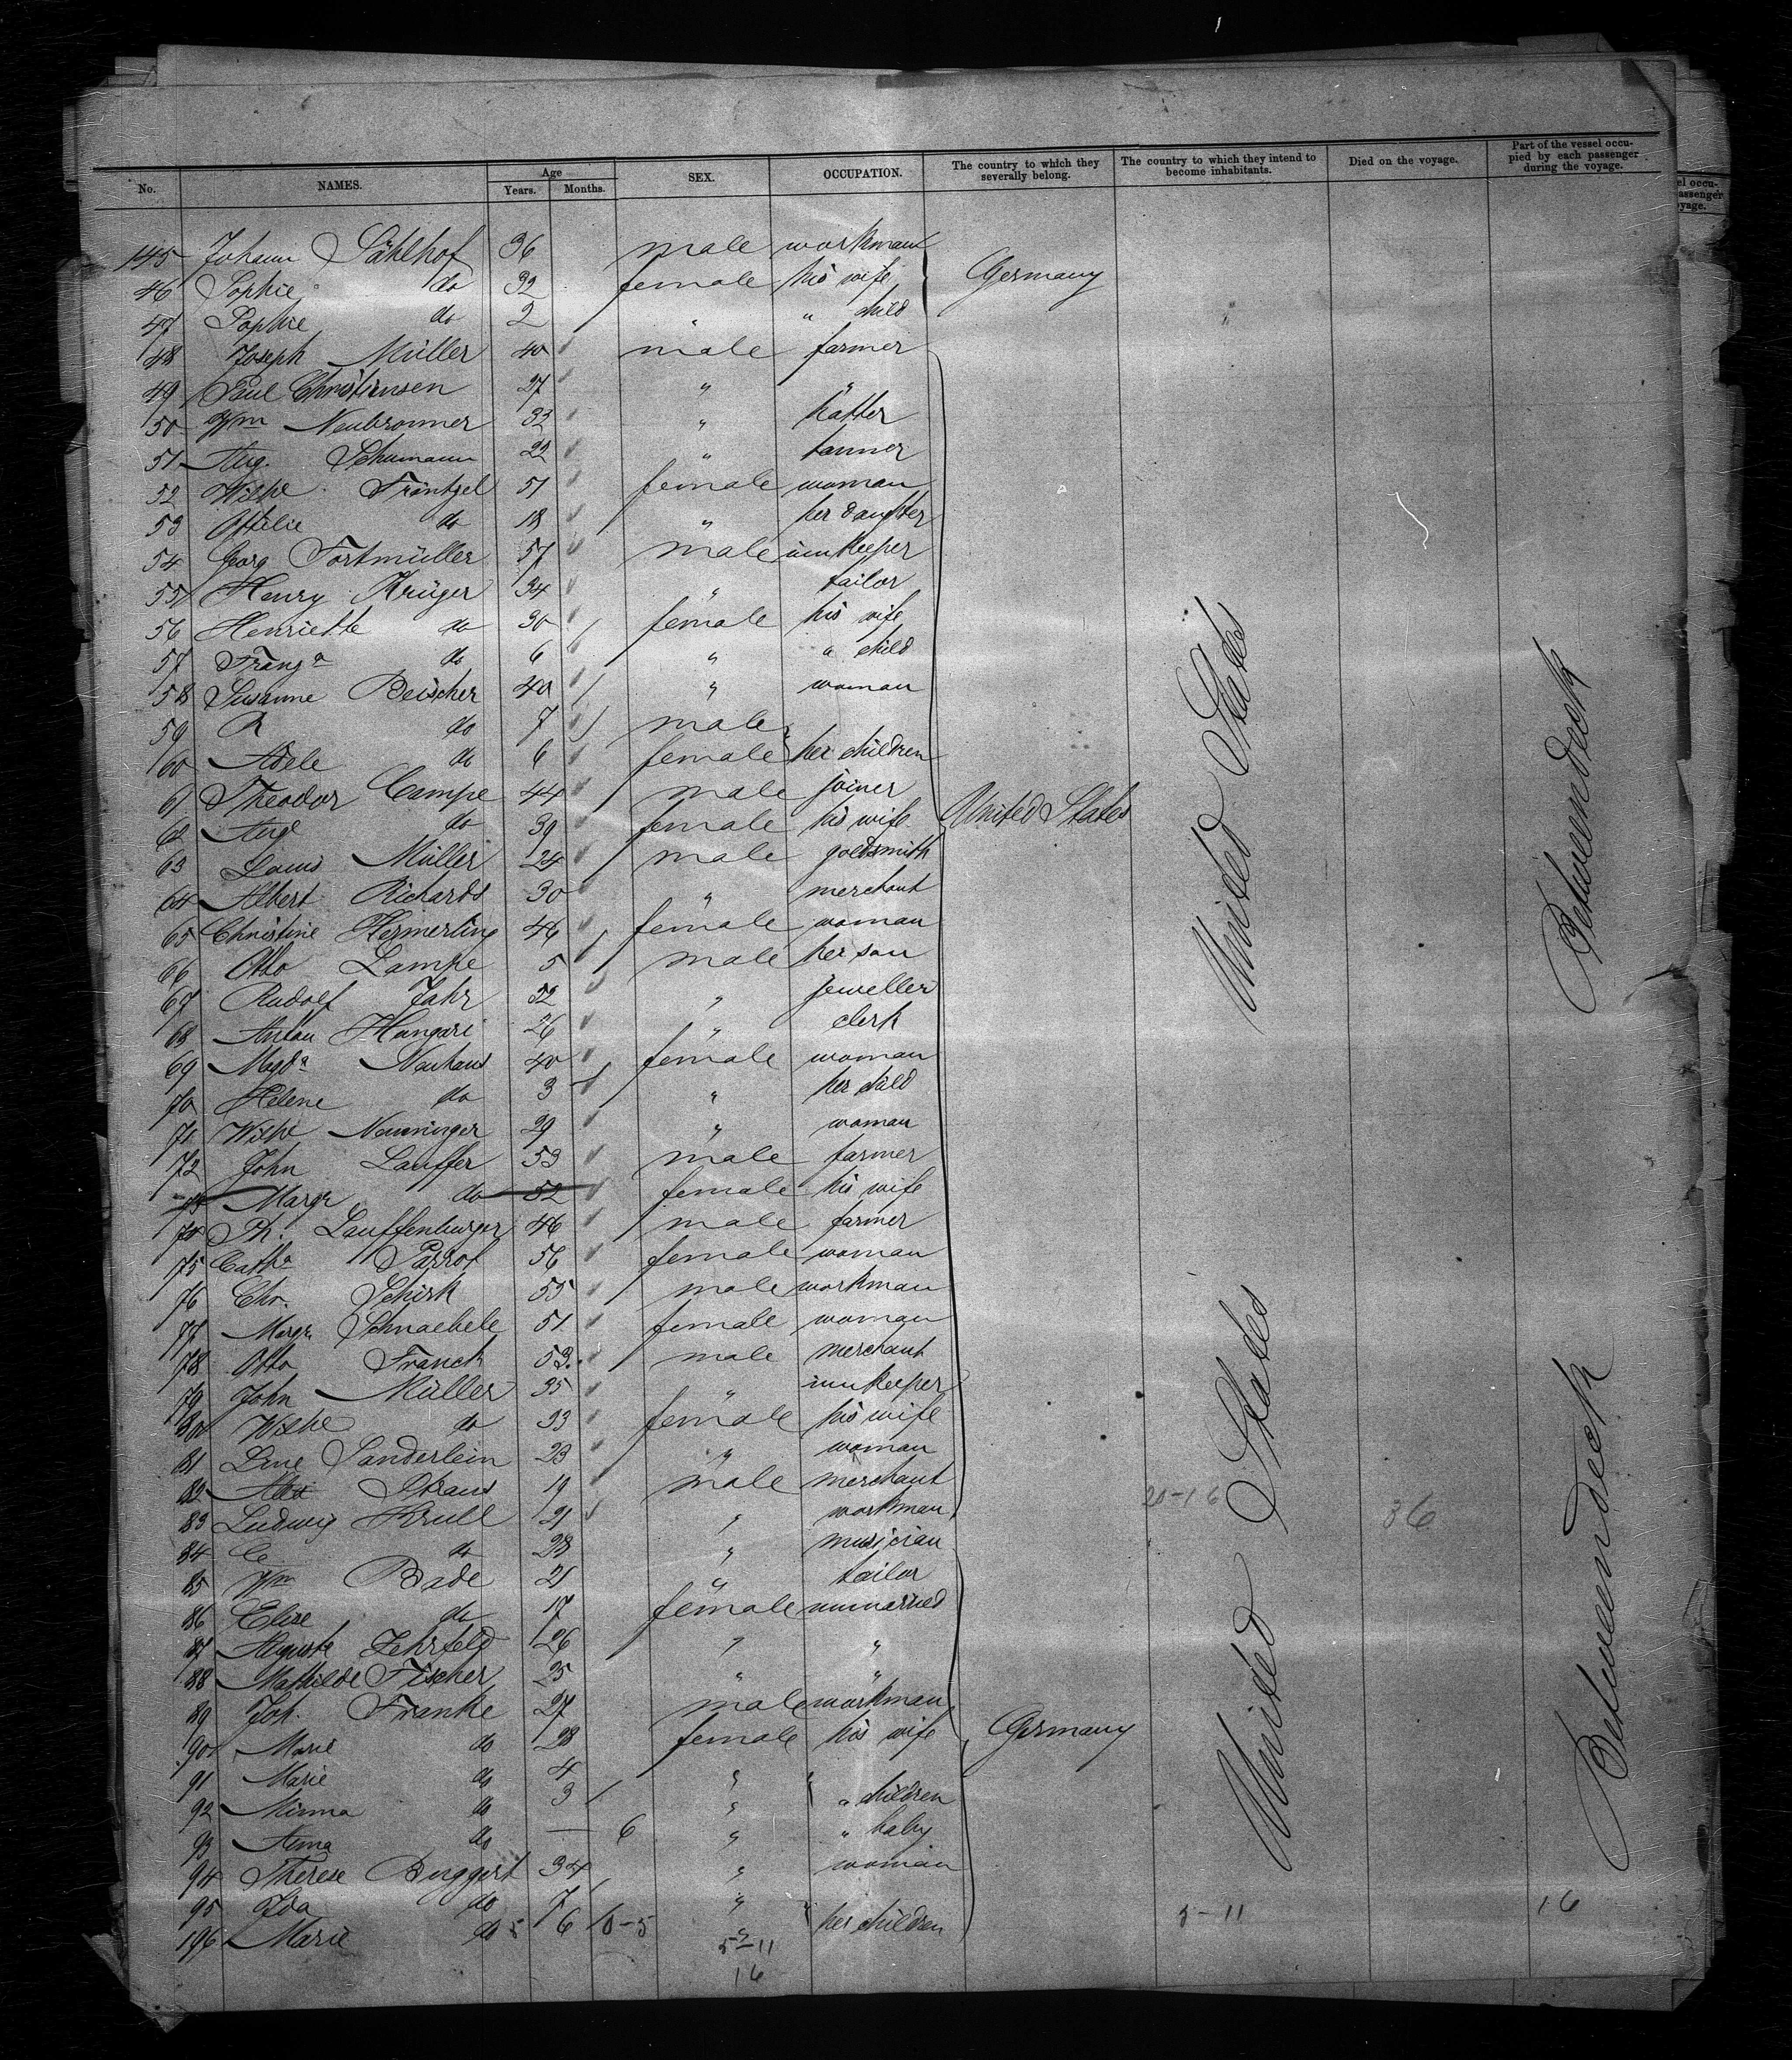 No. NAMES. Age Years. Months. SEX. OCCUPATION. The country to which they severally belong. The country to which they intend to become inhabitants. Died on the voyage. Part of the vessel occupied by each passenger during the voyage.
145 Johann Sählhof 36 male workman
46 Sophie do 32 female his wife Germany
47 Sophie do 2 " " child
48 Joseph Müller 40 male farmer
49 Paul Christiansen 27 " "
50 Wm Neubronner 33 " hatter
51 Aug. Schumann 22 " tanner
52 Wilhe Fräntzel 51 female woman
53 Ottilie do 18 " her daughter
54 Georg Fortmüller 57 male innkeeper
55 Henry Krüger 34 " tailor
56 Henriette do 30 female his wife
57 Franz a do 6 " " child
58 Susanne Beischer 40 " woman
59 R do 7 male
60 Adele do 6 female her children
61 Theodor Campe 44 male joiner
62 Aug e do 39 female his wife United States
63 Louis Müller 24 male goldsmith
64 Albert Richards 30 " merchant
65 Christine Hemmerling 46 female woman
66 Otto Lampe 5 male her son
67 Rudolf Jahr 52 " jeweller
68 Anton Hungari 26 " clerk
69 Magd a Neuhaus 40 female woman
70 Helene do 3 " her child
71 Wilhe Nenninger 29 " woman
72 John Lauffer 53 male farmer
73 Margr do 52 female his wife
74 Th. Lauffenburger 46 male farmer
75 Cath a Parrot 56 female woman
76 Chr. Schirk 55 male workman
77 Margr Schnaebele 51 female woman
78 Otto Franck 53 male merchant
79 John Müller 35 " innkeeper
80 Wilhe do 33 female his wife
81 Line Sanderlein 23 " woman
82 Alex Straus 19 male merchant 20-16
83 Ludwig Krull 21 " workman 36
84 C do 28 " musician
85 Wm Bade 21 " tailor
86 Elise do 17 female unmarried
87 Auguste Zehrfeld 26 " "
88 Mathilde Fischer 25 " "
89 Joh. Franke 27 male workman
90 Marie do 28 female his wife Germany
91 Marie do 4 "
92 Minna do 3 " " children
93 Anna do — 6 " " baby
94 Therese Buggert 34 " woman
95 Ida do 7 "
196 Marie do 6 " her children
5 6-5
5-11
16
5-11 16
United States
United States
Between Deck
Between Deck